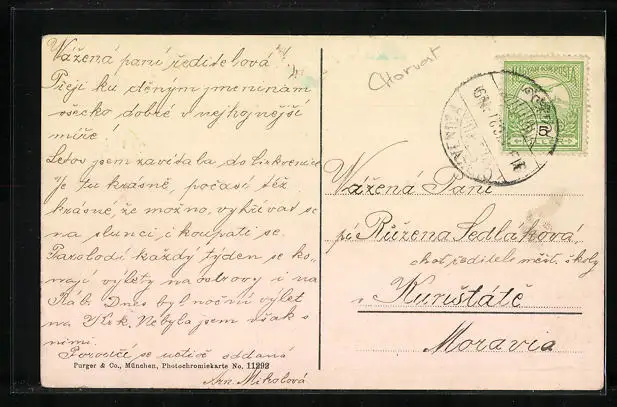 Vážená paní ředitelová
Přeji ku ctěným jmeninám
všecko dobré v nejhojnější
míře!
Letos jsem zavítala do Cirkvenice
Je tu krásně, počasí též
krásné, že možno, vyhřívat se
na slunci, i koupati se.
Parolodí každý týden se ko-
nají výlety na ostrovy i na
Ráb. Dnes byl noční výlet
na Krk. Nebyla jsem však s
nimi.
Poroučí se uctivě oddaná
Arn. Mikolová
Purger & Co., München, Photochromiekarte No. 11292
Horvat
MAGYAR KIR. POSTA
CIRKVENICA
Vážená Paní
pí Růžena Sedláková,
chot ředitele měšt. školy
v Kunštátě
Moravia